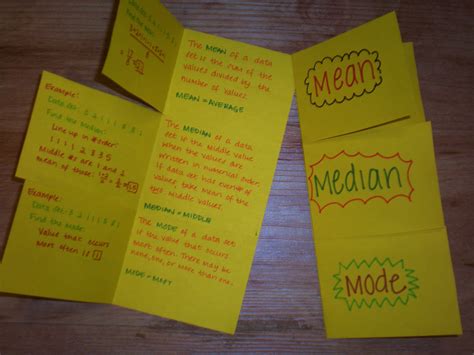 Find the Mean:
The MEAN of a data
set is the sum of the
values divided by the
number of values.
MEAN = AVERAGE
Example:
Data set: 3 2 1 1 5 8 1
Find the Median:
Line up in #order:
1 1 1 2 3 5 8
Middle #s are 1 and 2
Mean of those:
The MEDIAN of a data
set is the middle value
when the values are
written in numerical order.
If data set has even # of
values, take mean of the
two middle values.
MEDIAN = MIDDLE
Example:
Find the mode:
Value that occurs
most often is 1
The MODE of a data set
is the value that occurs
most often. There may be
none, one, or more than one.
MODE = MOST
Mean
Median
Mode